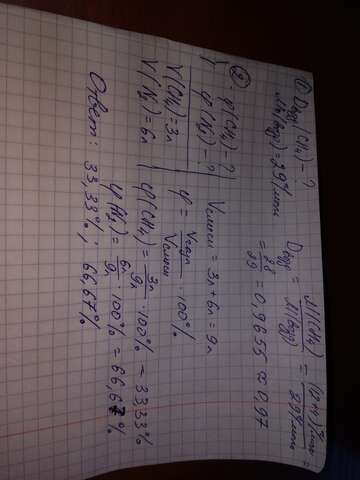 ① Dвозд(CH₄) - ?
M(возд) = 29 г/моль
Dвозд = M(CH₄) / M(возд) = (12+4) г/моль / 29 г/моль =
= 28/29 = 0,9655 ≈ 0,97
② φ(CH₄) - ?
φ(N₂) - ?
V(CH₄) = 3л
V(N₂) = 6л
Vсмеси = 3л + 6л = 9л
φ = Vгаза / Vсмеси · 100%
φ(CH₄) = 3л/9л · 100% = 33,33%
φ(N₂) = 6л/9л · 100% = 66,67%
Ответ: 33,33%; 66,67%